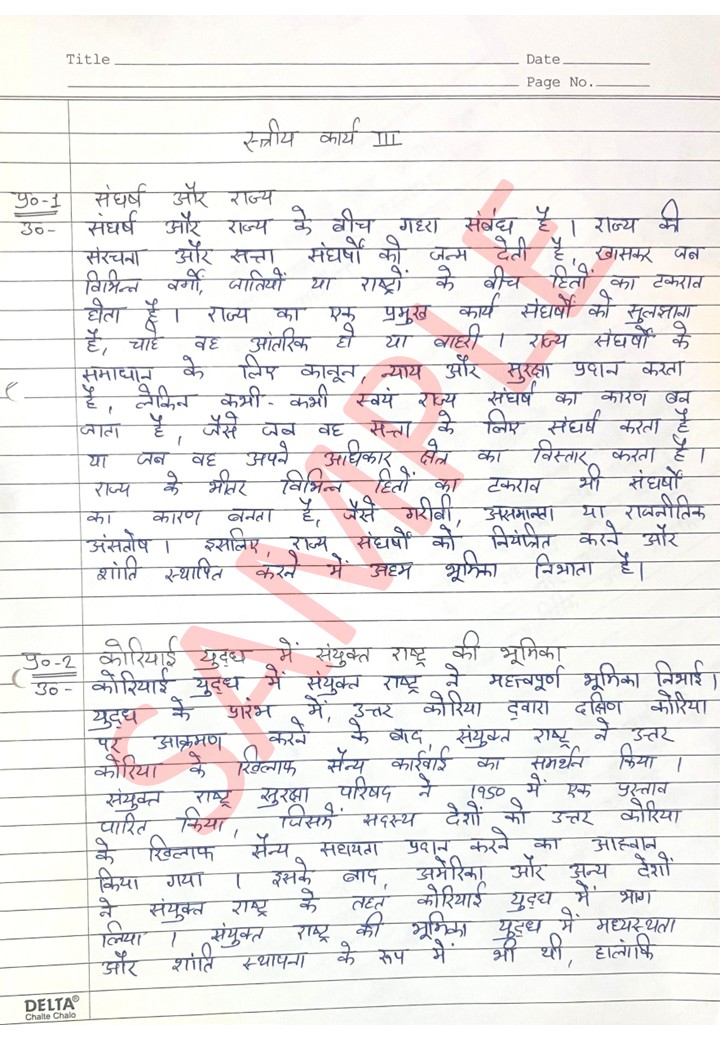 Title
Date
Page No.
स्त्रीय कार्य III
प्र०-1 संघर्ष और राज्य
उ०- संघर्ष और राज्य के बीच गहरा संबंध है । राज्य की
संरचना और सत्ता संघर्षों को जन्म देती है, खासकर जब
विभिन्न वर्गों, जातियों या राष्ट्रों के बीच हितों का टकराव
होता है । राज्य का एक प्रमुख कार्य संघर्षों को सुलझाना
है, चाहे वह आंतरिक हो या बाहरी । राज्य संघर्षों के
समाधान के लिए कानून, न्याय और सुरक्षा प्रदान करता
है, लेकिन कभी-कभी स्वयं राज्य संघर्ष का कारण बन
जाता है, जैसे जब वह सत्ता के लिए संघर्ष करता है
या जब वह अपने अधिकार क्षेत्र का विस्तार करता है ।
राज्य के भीतर विभिन्न हितों का टकराव भी संघर्षों
का कारण बनता है, जैसे गरीबी, असमानता या राजनीतिक
अंसतोष । इसलिए, राज्य संघर्षों को नियंत्रित करने और
शांति स्थापित करने में अहम भूमिका निभाता है।
प्र०-2 कोरियाई युद्ध में संयुक्त राष्ट्र की भूमिका
उ०- कोरियाई युद्ध में संयुक्त राष्ट्र ने महत्वपूर्ण भूमिका निभाई ।
युद्ध के प्रारंभ में, उत्तर कोरिया द्वारा दक्षिण कोरिया
पर आक्रमण करने के बाद, संयुक्त राष्ट्र ने उत्तर
कोरिया के खिलाफ सैन्य कार्रवाई का समर्थन किया ।
संयुक्त राष्ट्र सुरक्षा परिषद ने 1950 में एक प्रस्ताव
पारित किया, जिसमें सदस्य देशों को उत्तर कोरिया
के खिलाफ सैन्य सहायता प्रदान करने का आह्वान
किया गया । इसके बाद, अमेरिका और अन्य देशों
ने संयुक्त राष्ट्र के तहत कोरियाई युद्ध में भाग
लिया । संयुक्त राष्ट्र की भूमिका युद्ध में मध्यस्थता
और शांति स्थापना के रूप में भी थी, हालांकि
DELTA®
Chalte Chalo
SAMPLE